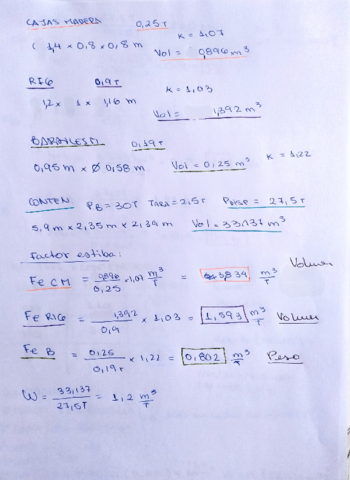 CAJAS MADERA 0,25T
( 1,4 x 0,8 x 0,8 m K = 1,07
Vol = 0,896 m³
RIG 0,9T K = 1,03
1,2 x 1 x 1,16 m Vol = 1,392 m³
0,19T
0,95 m x Ø 0,58 m Vol = 0,25 m³ K = 1,22
CONTEN PB = 30T TARA = 2,5T = 27,5T
5,9 m x 2,35 m x 2,39 m Vol = 33,137 m³
Factor estiba:
Fe CM = 0,896 / 0,25 x 1,07 m³/T = 3,834 m³/T Volumen
Fe RIG = 1,392 / 0,9 x 1,03 = 1,593 m³/T Volumen
Fe B = 0,25 / 0,19T x 1,22 = 0,802 m³/T Peso
W = 33,137 / 27,5T = 1,2 m³/T